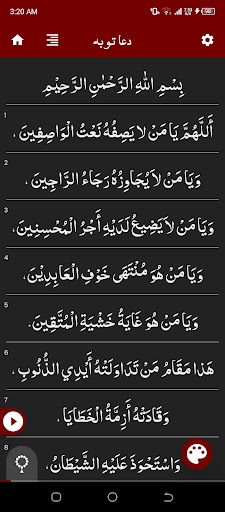 3:20 AM
دعا توبہ
بِسْمِ اللهِ الرَّحْمٰنِ الرَّحِيْمِ
1
أَللَّهُمَّ يَا مَنْ لَا يَصِفُهُ نَعْتُ الْوَاصِفِينَ ،
2
وَيَا مَنْ لَا يُجَاوِزُهُ رَجَاءُ الرَّاجِينَ ،
3
وَيَا مَنْ لَا يَضِيعُ لَدَيْهِ أَجْرُ الْمُحْسِنِينَ ،
4
وَيَا مَنْ هُوَ مُنْتَهَى خَوْفِ الْعَابِدِيْنَ ،
5
وَيَا مَنْ هُوَ غَايَةُ خَشْيَةِ الْمُتَّقِينَ .
6
هَذا مَقَامُ مَنْ تَدَاوَلَتْهُ أَيْدِي الذُّنُوبِ ،
7
وَقَادَتْهُ أَزِمَّةُ الْخَطَايَا ،
8
وَاسْتَحْوَذَ عَلَيْهِ الشَّيْطَانُ ،